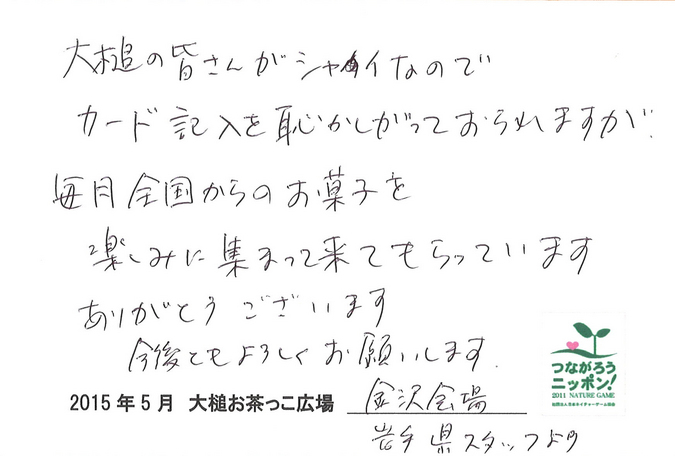 大槌の皆さんがシャイなので
カード記入を恥かしがっておられますが、
毎月全国からのお菓子を
楽しみに集まって来てもらっています
ありがとうございます
今後ともよろしくお願いします.
つながろう
ニッポン!
2011 NATURE GAME
社団法人日本ネイチャーゲーム協会
2015年5月 大槌お茶っこ広場 金沢会場
岩手県スタッフより